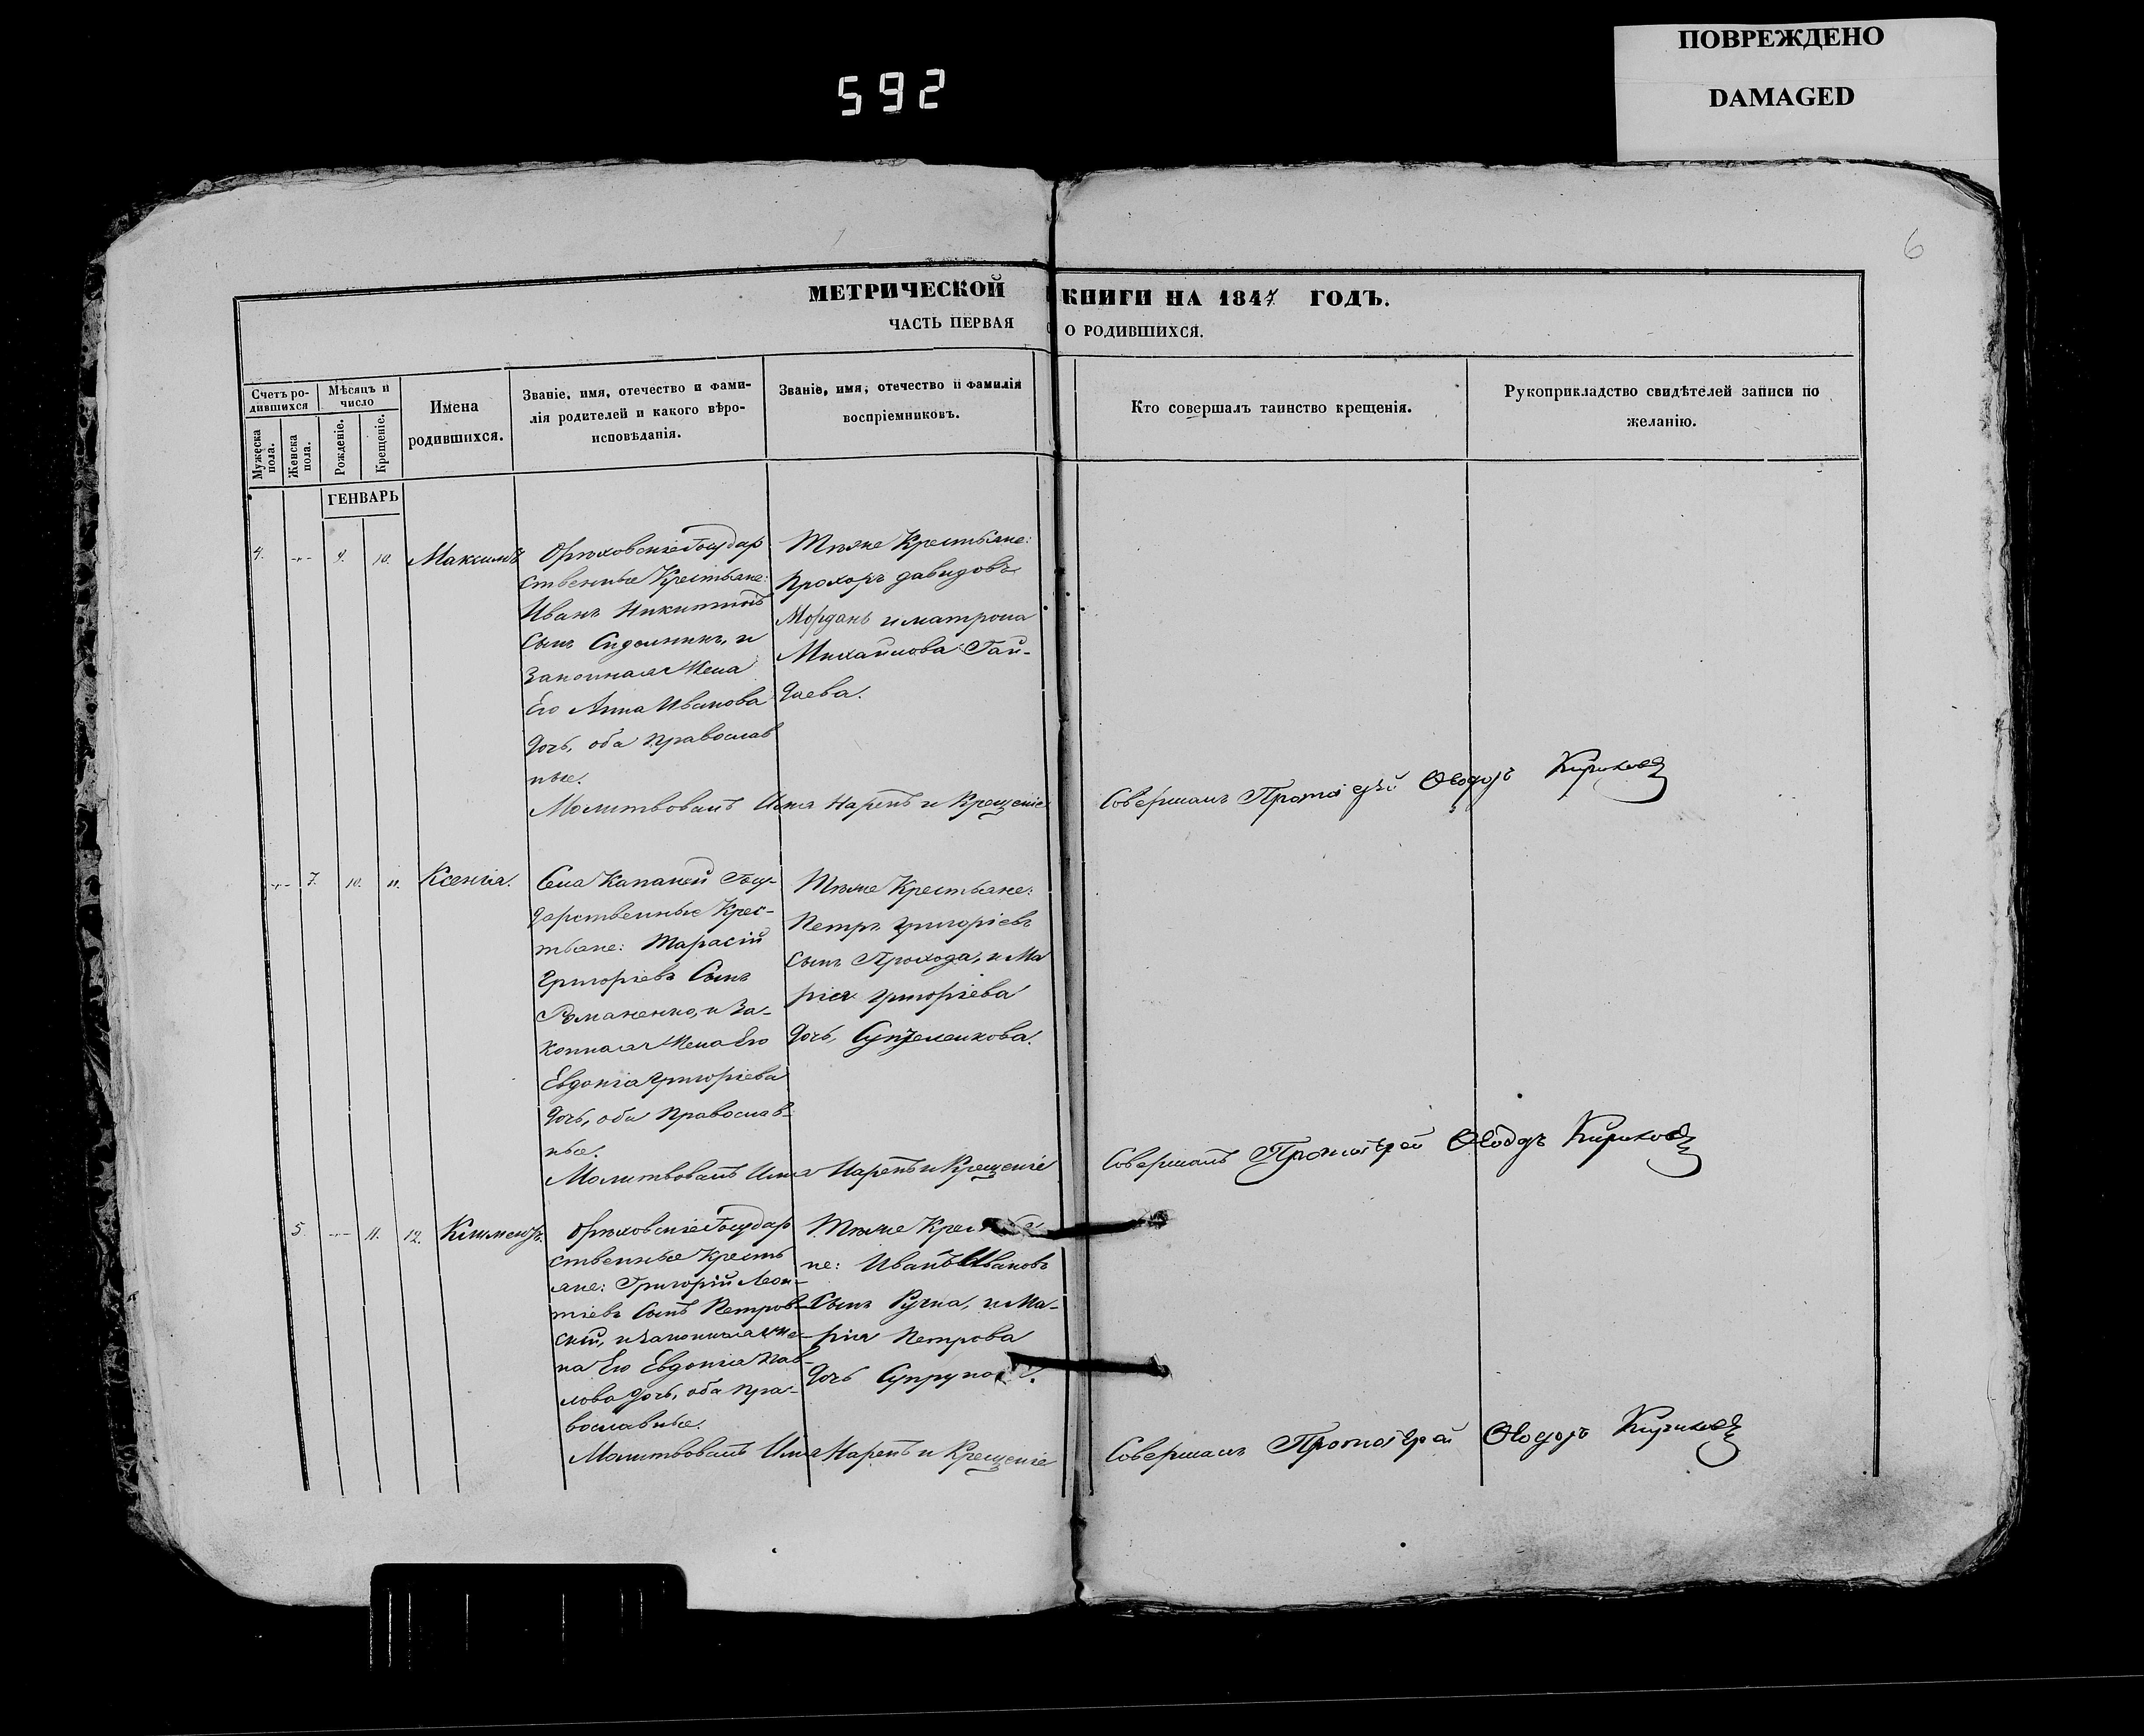 ПОВРЕЖДЕНО
DAMAGED
592
6
МЕТРИЧЕСКОЙ КНИГИ НА 1847 ГОДЪ.
ЧАСТЬ ПЕРВАЯ О РОДИВШИХСЯ.
Счетъ ро-
дившихся
Мужеска пола.
Женска пола.
Мѣсяцъ и
число
Рожденіе.
Крещеніе.
Имена
родившихся.
Званіе, имя, отечество и фами-
лія родителей и какого вѣро-
исповѣданія.
Званіе, имя, отечество и фамилія
воспріемниковъ.
Кто совершалъ таинство крещенія.
Рукоприкладство свидѣтелей записи по
желанію.
ГЕНВАРЬ
4. -"- 10. Максимъ
Орѣховскіе Государ
ственные Крестьяне:
Иванъ Никитинъ
Сынъ и
Законная Жена
Его Анна Иванова
дочь, оба православ
ные.
Тѣже Крестьяне:
Прохоръ давидовъ
Морданъ и матрона
Михайлова Гай-
даева.
Молитвовалъ Имя Нарекъ и Крещеніе Совершалъ Протоіерей Ѳеодоръ Кириковъ
-"- 7. 10. 11. Ксенія.
Села Капаней Госу-
дарственные Крес-
тьяне: Тарасій
Григоріевъ Сынъ
Романенко, и За-
конная Жена Его
Евдокія Григоріева
дочь, оба Православ-
ные.
Тѣже Крестьяне:
Петръ Григоріевъ
Сынъ Прохода, и Ма
рія Григоріева
дочь,
Молитвовалъ Имя Нарекъ и Крещеніе Совершалъ Протоіерей Ѳеодоръ Кириковъ
5. -"- 11. 12. Климентъ.
Орѣховскіе Государ
ственные Кресть
яне: Григорій Леон-
тіевъ Сынъ Петров-
скій, и законная Же-
на Его Евдокія Пав-
лова дочь, оба Пра-
вославные.
Тѣже
не: Иванъ Ивановъ
Сынъ Ручка, и Ма-
рія Петрова
дочь
Молитвовалъ Имя Нарекъ и Крещеніе Совершалъ Протоіерей Ѳеодоръ Кириковъ